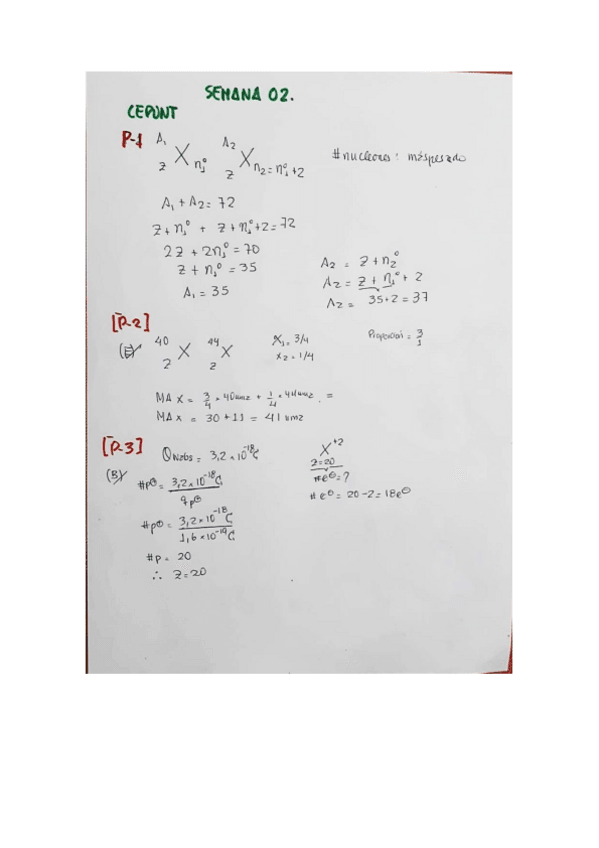 SEMANA 02.
CEPUNT
P-1 A₁ Z X n₁° A₂ Z X n₂ = n₁° + 2 # nucleones : más pesado
A₁ + A₂ = 72
Z + n₁° + Z + n₁° + 2 = 72
2Z + 2n₁° = 70
Z + n₁° = 35
A₁ = 35
A₂ = Z + n₂°
A₂ = Z + n₁° + 2
A₂ = 35 + 2 = 37
[P-2]
(E) 40 Z X 44 Z X X₁ = 3/4 Proporción = 3/1
X₂ = 1/4
MA X = 3/4 × 40 umz + 1/4 × 44 umz . =
MA X = 30 + 11 = 41 umz
[P-3] Q nabs = 3,2 × 10⁻¹⁸ C
(B) #p⊕ = 3,2 × 10⁻¹⁸ C / q p⊕
#p⊕ = 3,2 × 10⁻¹⁸ C / 1,6 × 10⁻¹⁹ C
#p = 20
∴ Z = 20
X⁺²
Z = 20
#e⊖ = ?
# e⊖ = 20 - 2 = 18 e⊖